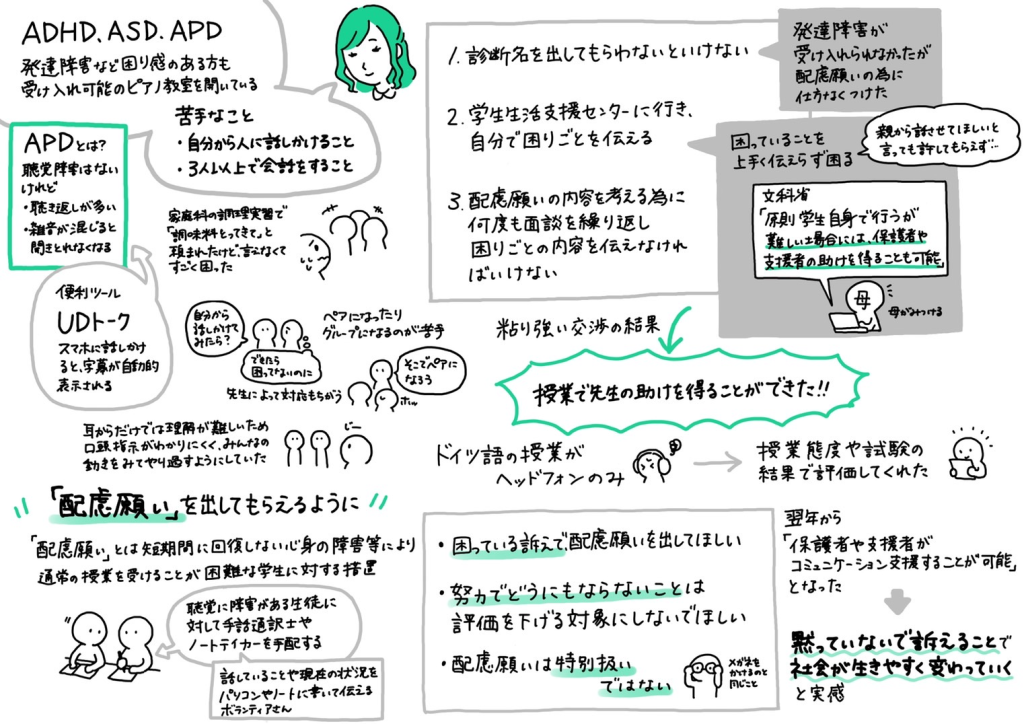 ADHD、ASD、APD
発達障害など困り感のある方も
受け入れ可能のピアノ教室を開いている
苦手なこと
・自分から人に話しかけること
・3人以上で会話をすること
APDとは?
聴覚障害はない
けれど
・聴き返しが多い
・雑音が混じると
聞きとれなくなる
家庭科の調理実習で
「調味料とってきて」と
頼まれたけど、言えなくて
すごく困った
便利ツール
UDトーク
スマホに話しかけ
ると、字幕が自動的
表示される
自分から
話しかけて
みたら?
できたら
困ってないのに
ペアになったり
グループになるのが苦手
先生によって対応もちがう
そこでペアに
なろう
ホッ
耳からだけでは理解が難しいため
口頭指示がわかりにくく、みんなの
動きをみてやり過すようにしていた
じー
「配慮願い」を出してもらえるように
「配慮願い」とは短期間に回復しない心身の障害等により
通常の授業を受けることが困難な学生に対する措置
聴覚に障害がある生徒に
対して手話通訳士や
ノートテイカーを手配する
話していることや現在の状況を
パソコンやノートに書いて伝える
ボランティアさん
1.診断名を出してもらわないといけない
発達障害が
受け入れられなかったが
配慮願いの為に
仕方なくつけた
2.学生生活支援センターに行き、
自分で困りごとを伝える
困っていることを
上手く伝えらず困る
親から話させてほしいと
言っても許してもらえず…
3.配慮願いの内容を考える為に
何度も面談を繰り返し
困りごとの内容を伝えなけれ
ばいけない
文科省
「原則学生自身で行うが
難しい場合には、保護者や
支援者の助けを得ることも可能」
母
母がみつける
粘り強い交渉の結果
授業で先生の助けを得ることができた!!
ドイツ語の授業が
ヘッドフォンのみ
授業態度や試験の
結果で評価してくれた
・困っている訴えで、配慮願いを出してほしい
・努力でどうにもならないことは
評価を下げる対象にしないでほしい
・配慮願いは特別扱い
ではない
メガネを
かけるのと
同じこと
翌年から
「保護者や支援者が
コミュニケーション支援することが可能」
となった
黙っていないで訴えることで
社会が生きやすく変わっていく
と実感